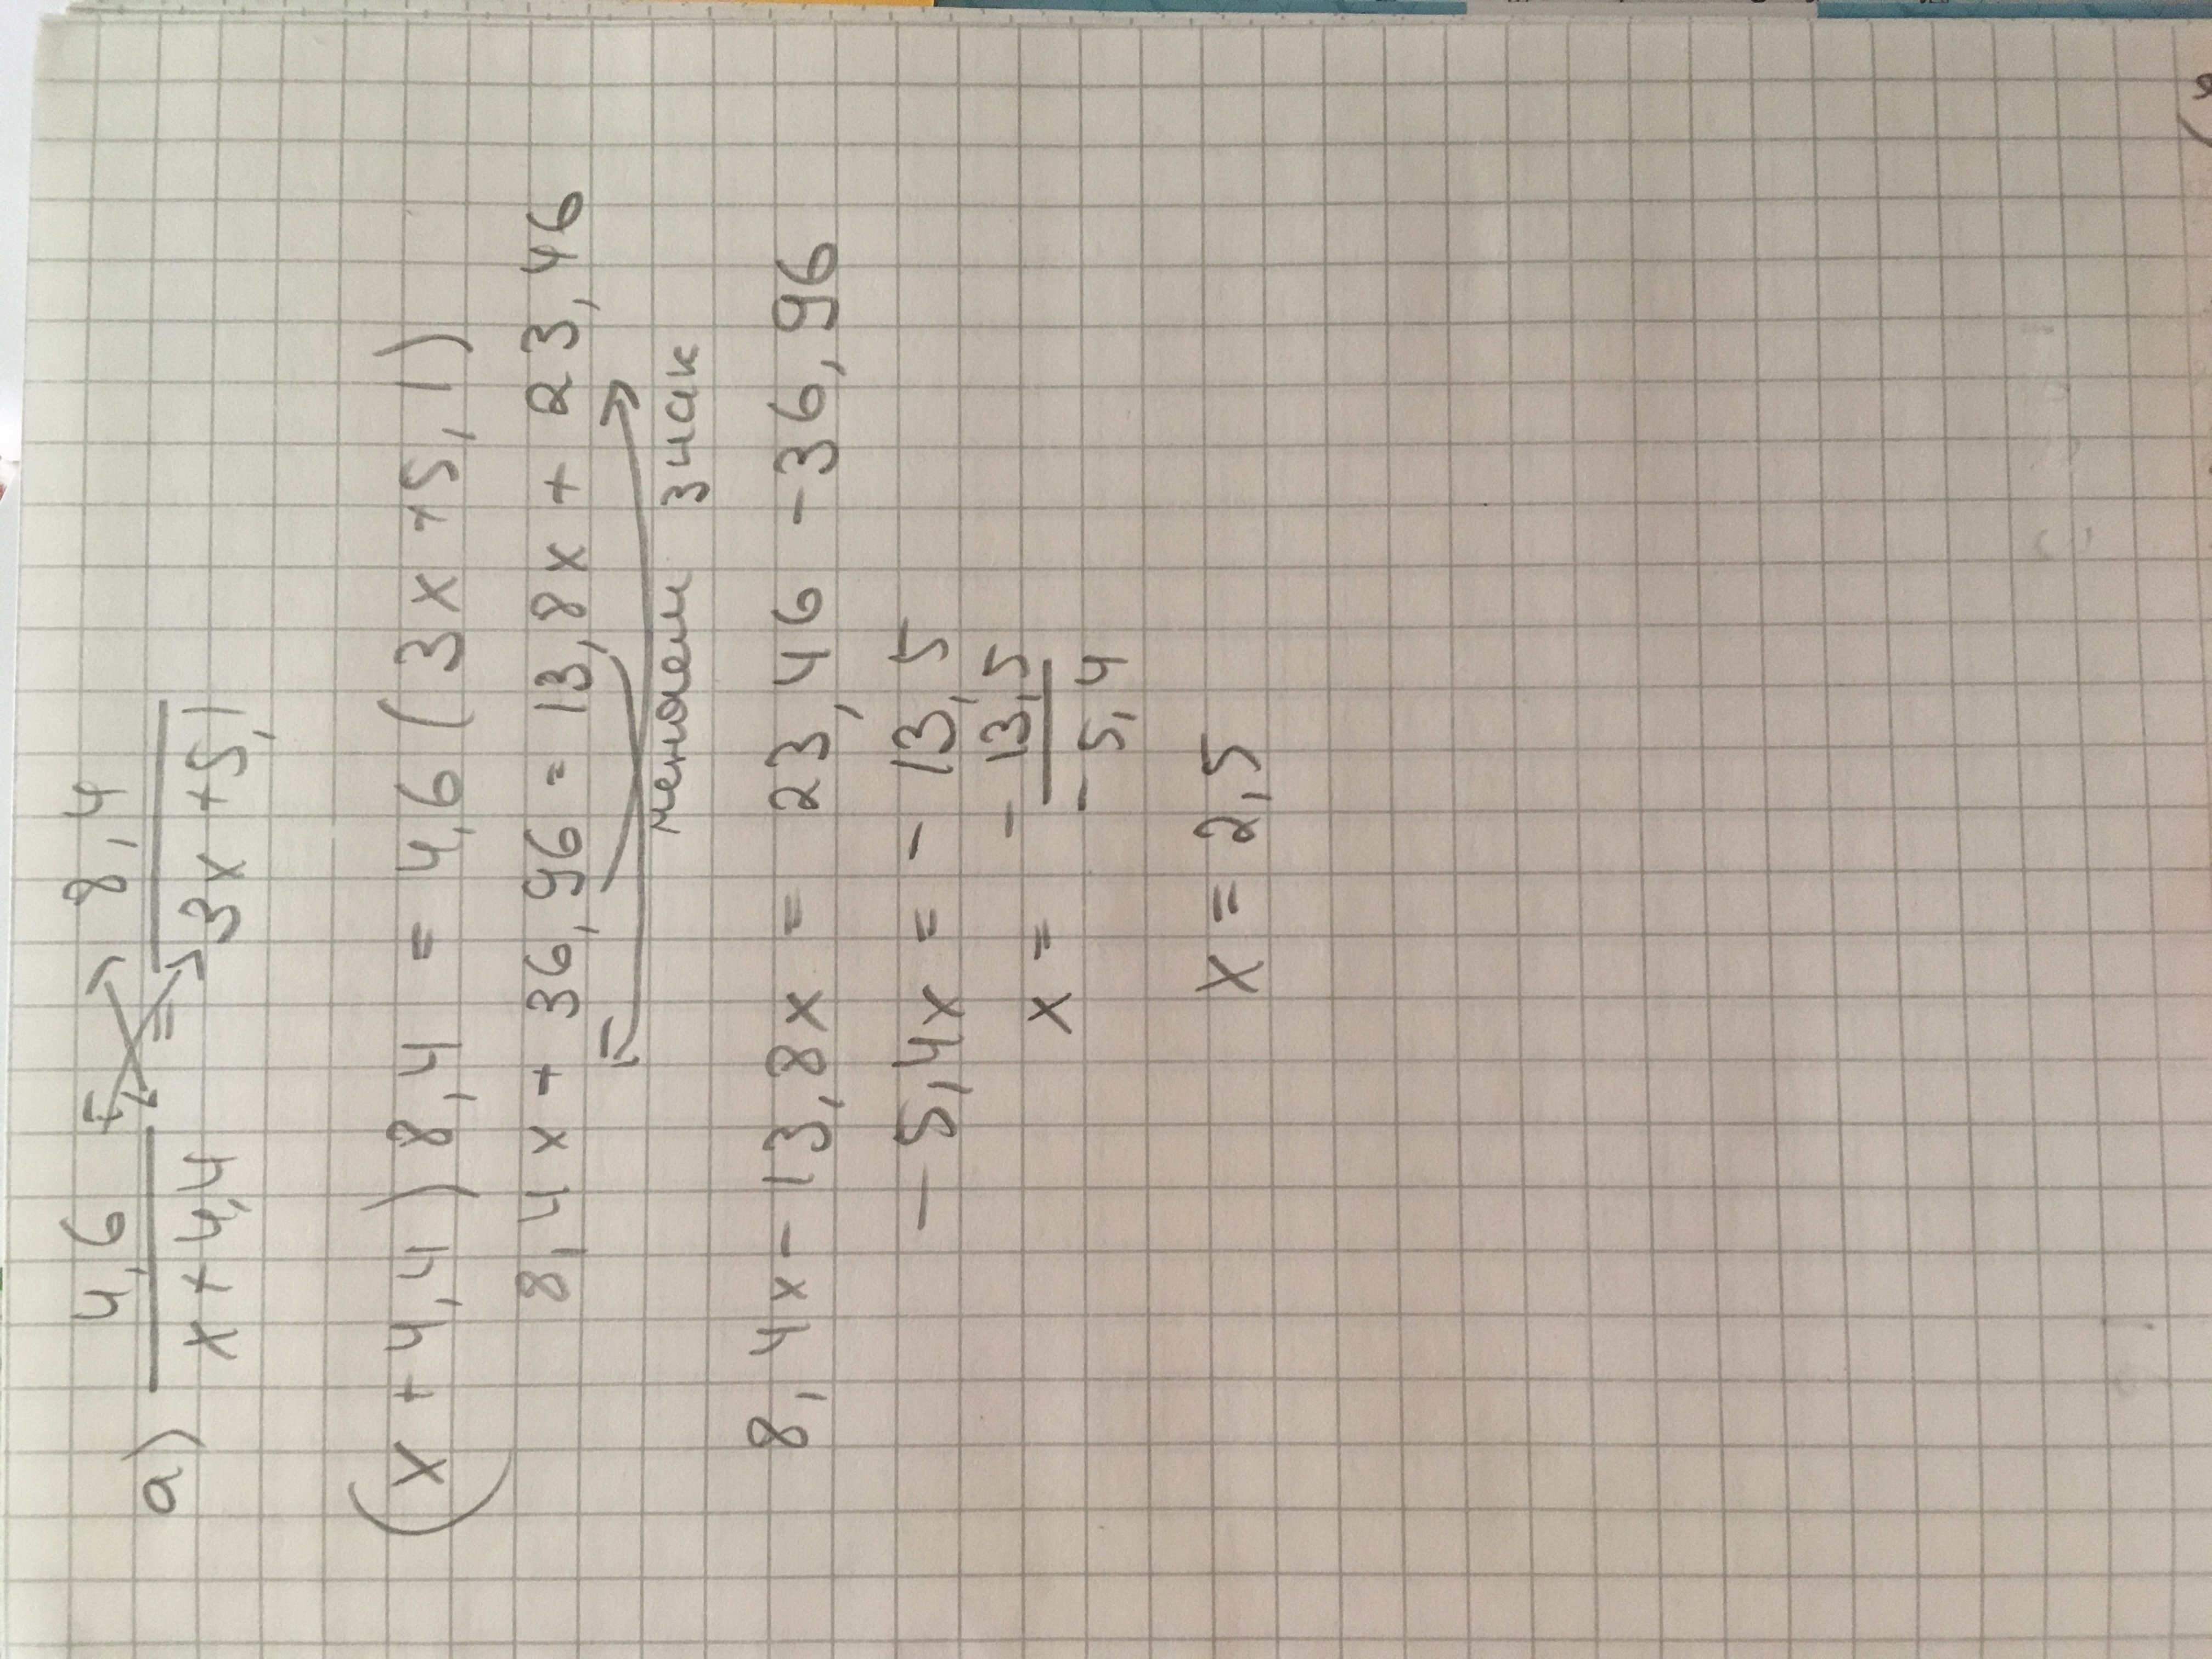 а) 4,6 / x + 4,4 = 8,4 / 3x + 5,1
(x + 4,4) 8,4 = 4,6 (3x + 5,1)
8,4x + 36,96 = 13,8x + 23,46
меняем знак
8,4x - 13,8x = 23,46 - 36,96
- 5,4x = - 13,5
x = - 13,5 / - 5,4
x = 2,5